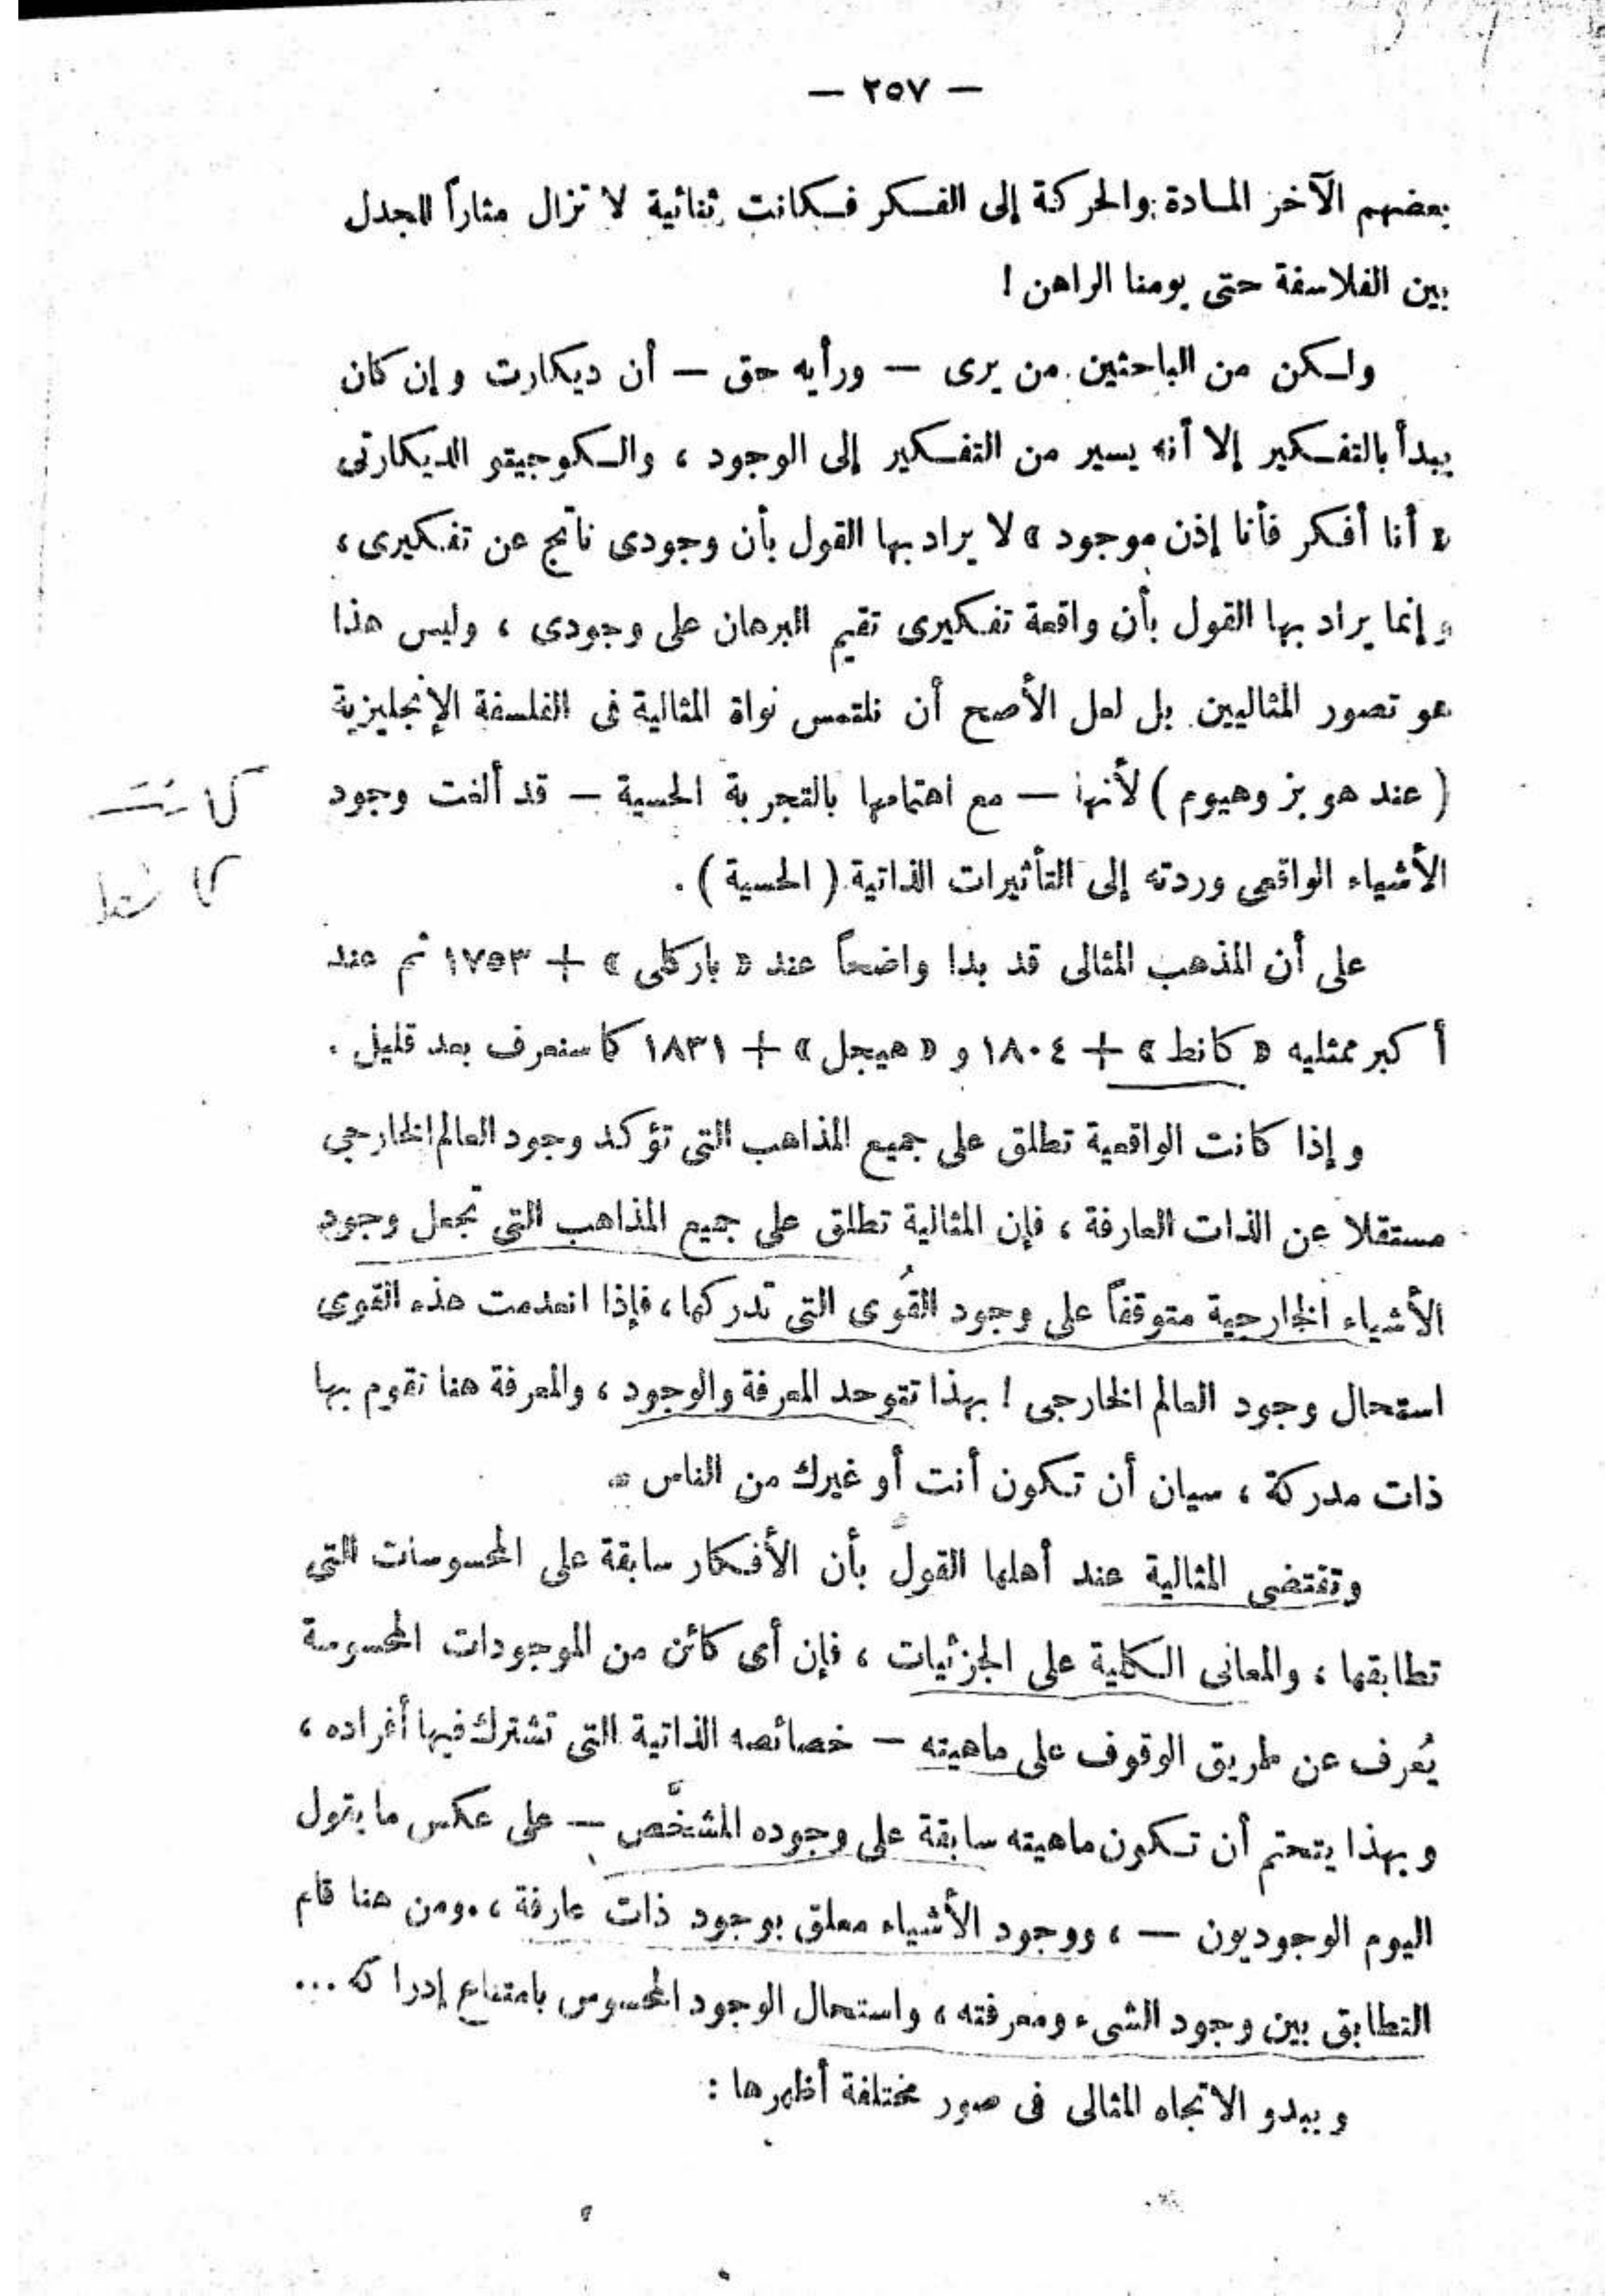 — ٢٥٧ —
بعضهم الآخر المادة والحركة إلى الفكر فكانت ثنائية لا تزال مثاراً للجدل
بين الفلاسفة حتى يومنا الراهن !
ولكن من الباحثين من يرى — ورأيه حق — أن ديكارت وإن كان
يبدأ بالتفكير إلا أنه يسير من التفكير إلى الوجود ، والكوجيتو الديكارتى
« أنا أفكر فأنا إذن موجود » لا يراد بها القول بأن وجودى ناتج عن تفكيرى ،
وإنما يراد بها القول بأن واقعة تفكيرى تقيم البرهان على وجودى ، وليس هذا
هو تصور المثاليين بل لعل الأصح أن نلتمس نواة المثالية فى الفلسفة الإنجليزية
( عند هوبز وهيوم ) لأنها — مع اهتمامها بالتجربة الحسية — قد ألغت وجود
كانت
الأشياء الواقعى وردته إلى التأثيرات الذاتية ( الحسية ) .
على أن المذهب المثالى قد بدا واضحاً عند « باركلى » + ١٧٥٣ ثم عند
أكبر ممثليه « كانط » + ١٨٠٤ و « هيجل » + ١٨٣١ كما سنعرف بعد قليل .
وإذا كانت الواقعية تطلق على جميع المذاهب التى تؤكد وجود العالم الخارجى
مستقلا عن الذات العارفة ، فإن المثالية تطلق على جميع المذاهب التى تجعل وجود
الأشياء الخارجية متوقفاً على وجود القُوى التى تدركها ، فإذا انعدمت هذه القوى
استحال وجود العالم الخارجى ! بهذا تتوحد المعرفة والوجود ، والمعرفة هنا تقوم بها
ذات مدركة ، سيان أن تكون أنت أو غيرك من الناس .
وتقتضى المثالية عند أهلها القول بأن الأفكار سابقة على المحسوسات التى
تطابقها ، والمعانى الكلية على الجزئيات ، فإن أى كائن من الموجودات المحسوسة
يُعرف عن طريق الوقوف على ماهيته — خصائصه الذاتية التى تشترك فيها أفراده ،
وبهذا يتحتم أن تكون ماهيته سابقة على وجوده المشخَّص — على عكس ما يقول
اليوم الوجوديون — ، ووجود الأشياء معلق بوجود ذات عارفة ، ومن هنا قام
التطابق بين وجود الشىء ومعرفته ، واستحال الوجود المحسوس بامتناع إدراكه ...
ويبدو الاتجاه المثالى فى صور مختلفة أظهرها :